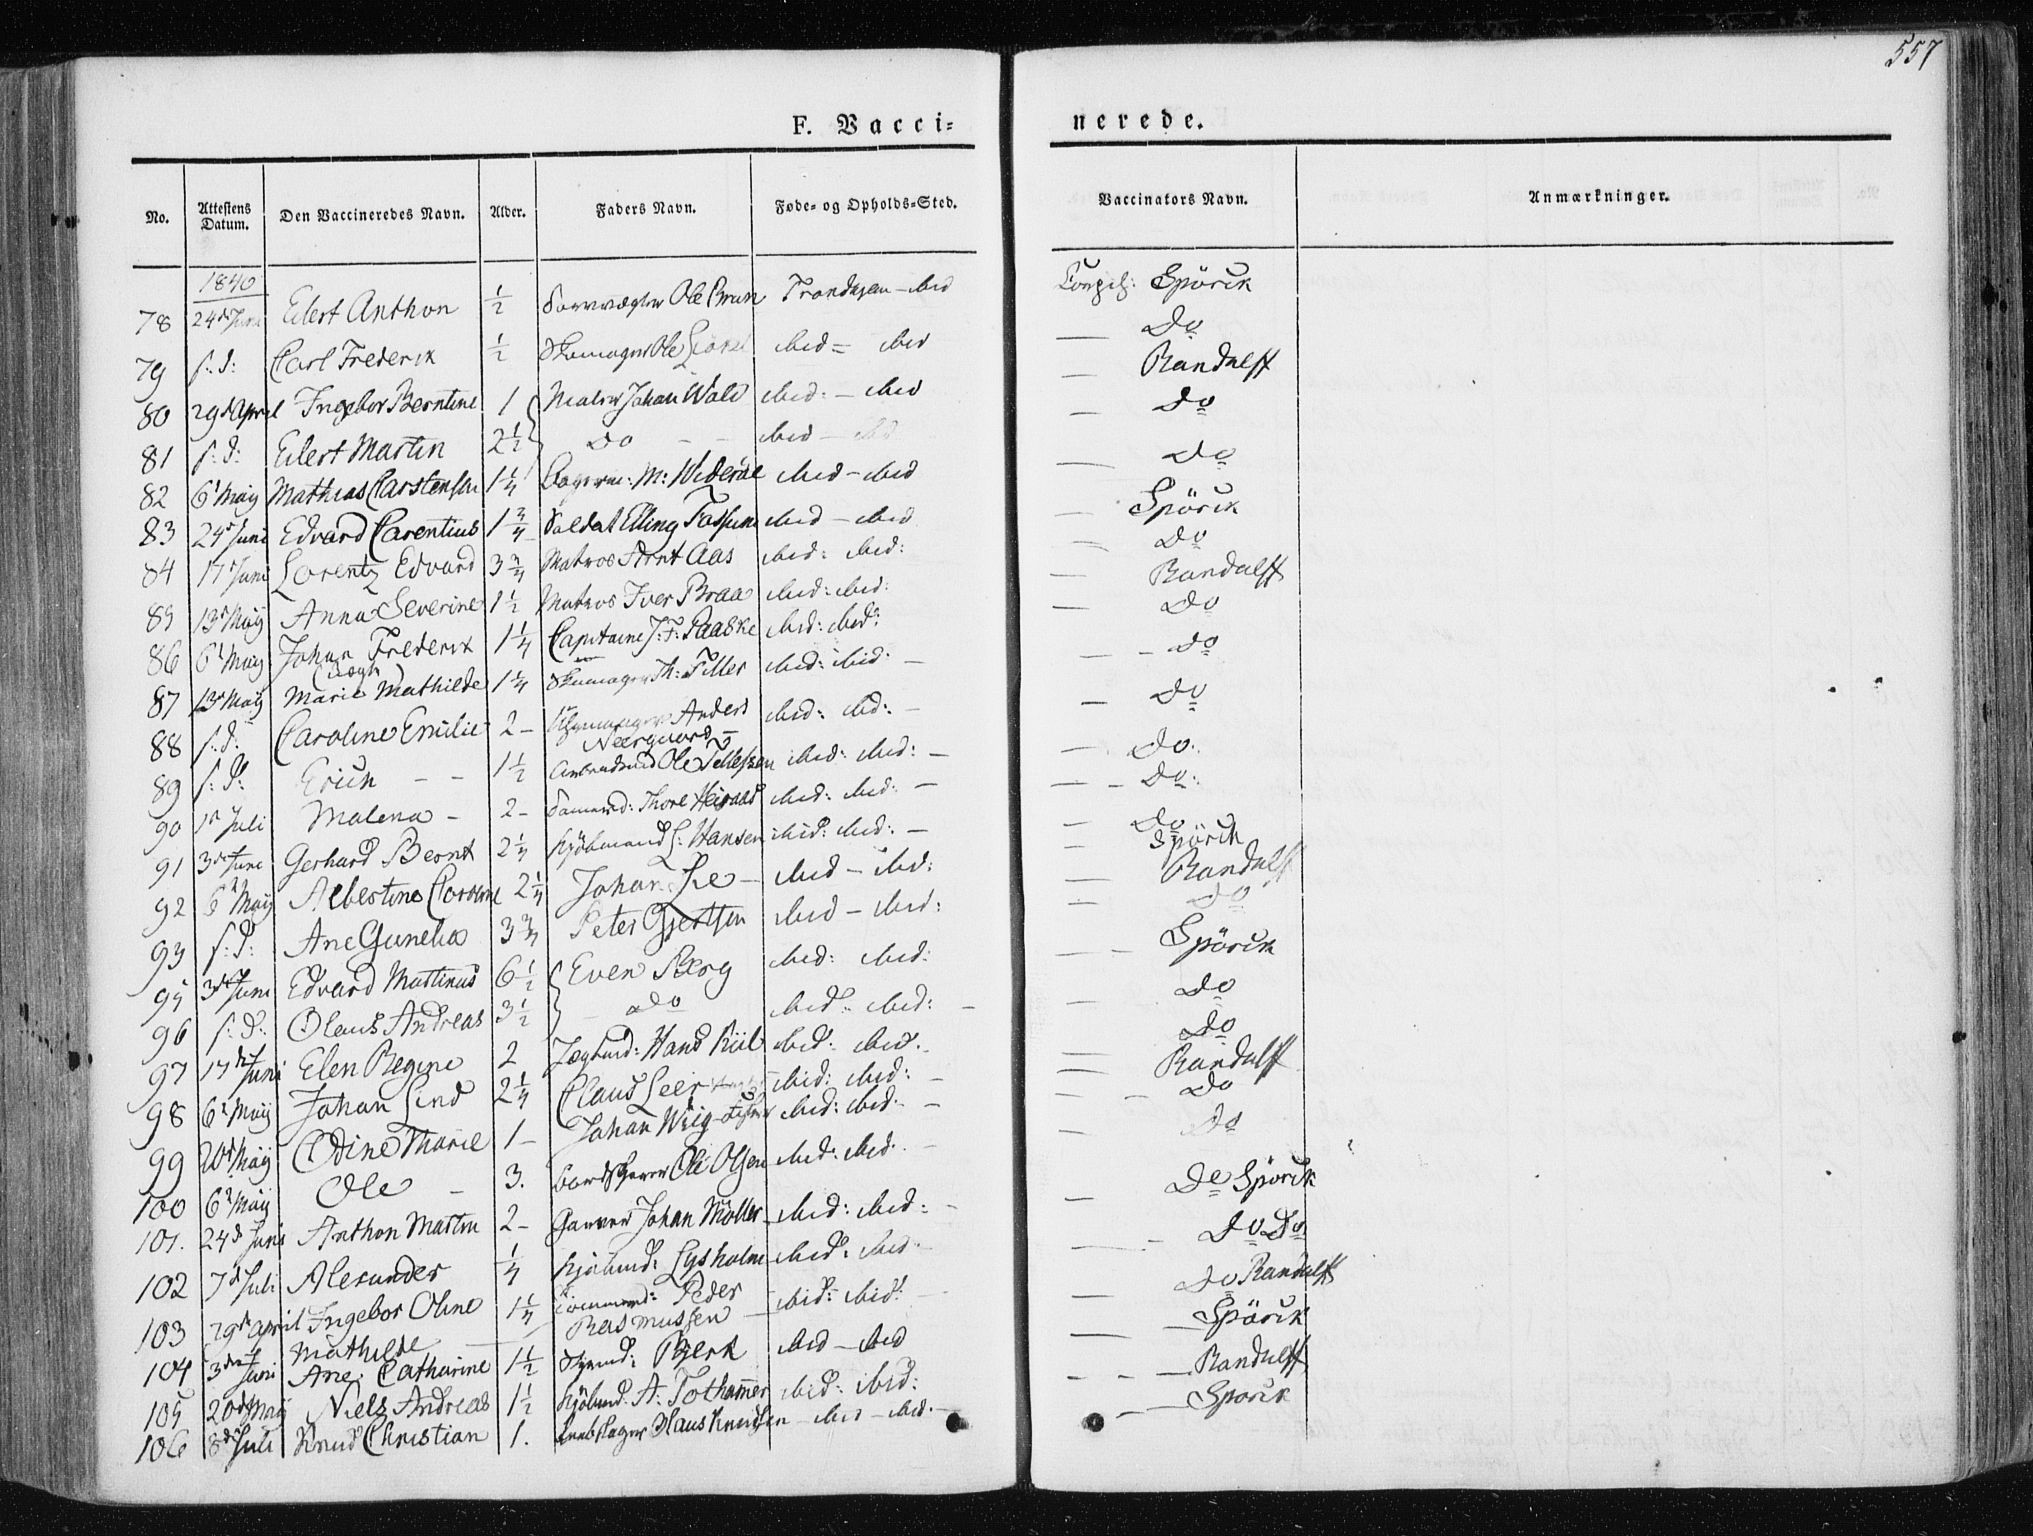 557
F. Vacci=
nerede.
No.
Attestens Datum.
Den Vaccineredes Navn.
Alder.
Faders Navn.
Føde- og Opholds-Sted.
Vaccinators Navn.
Anmærkninger.
1840
78 24d Juni Eilert Anthon 1/2 Ole Brun Trondhjem - ibid Spörck
79 s: d: Carl Frederik 1/2 Skomager Ole ibid = ibid Do
80 29d April Ingebor Berntine 1 Maler Johan Wald ibid: - ibid Randulff
81 s: d: Eilert Martin 2 1/2 Do - - ibid - ibid Do
82 6t May Mathias Carstensen 1 1/4 M: Widerøe ibid - ibid Do
83 24d Juni Edvard Carentius 1 3/4 Soldat Elling Fossum ibid - ibid Spörck
84 17d Juni Lorentz Edvard 3 3/4 Matros Arnt Aas ibid: ibid: Do
85 13d Maÿ Anna Severine 1 1/2 Matros Iver Braa ibid: ibid: Randulff
86 6t May Johan Frederik 1 1/4 Capitaine J: F: Paaske ibid: ibid: Do
87 13d Maÿ Marie Mathilde 1 1/4 Skomager Th: Tiller ibid: ibid: - Do
88 s: d: Caroline Emilie 2 - Anders Neergaard - ibid: ibid: - Do
89 s: d: Erich - - 1 1/2 Ole Tellefsen ibid: ibid: - Do:
90 1d Juli Malena - 2 - Thore ibid: ibid: - Do:
91 3d Juni Gerhard Bernt 2 1/4 Kjöbmand L: Hansen ibid: ibid: - Do Spörck
92 6t Maÿ Albertine 2 1/4 Johan Lie - ibid - ibid: Randulff
93 s: d: Ane Gunelia 3 3/4 Peter Gjertsen ibid - ibid: Do
95 3d Juni Edvard Martinus 6 1/2 Even Berg ibid: ibid: Spörck
96 s: d: Olaus Andreas 3 1/2 - Do ibid: ibid: - Do
97 17d Juni Elen Regine 2 Hans Kiil ibid: ibid: Do
98 6t Maÿ Johan Lind 2 1/4 Claus Leer ibid: ibid: - Randulff
99 20d Maÿ Odine Marie 1 - Johan Wiig ibid: ibid: - Do
100 6t Maÿ Ole - 3. Ole Olsen ibid: ibid: - Do
101. 24d Juni Anthon Martin 2 - Garver Johan Möller ibid: ibid: - Do Spörck
102 7d Juli Alexander 1/4 Kjöbmd: Lysholm ibid: ibid - Do Do
103 29d April Ingebor Oline Mathilde 1 1/4 Peder Rasmussen - ibid: ibid: - Do Randulff
104 3d Juni Ane Catharine 1 1/2 ibid - ibid Spörck
105 20d Maÿ Niels Andreas 1 1/2 Kjöbmd: A: ibid: ibid: Randulff
106 8d Juli Knud Christian 1. - ibid - ibid: - Sporck